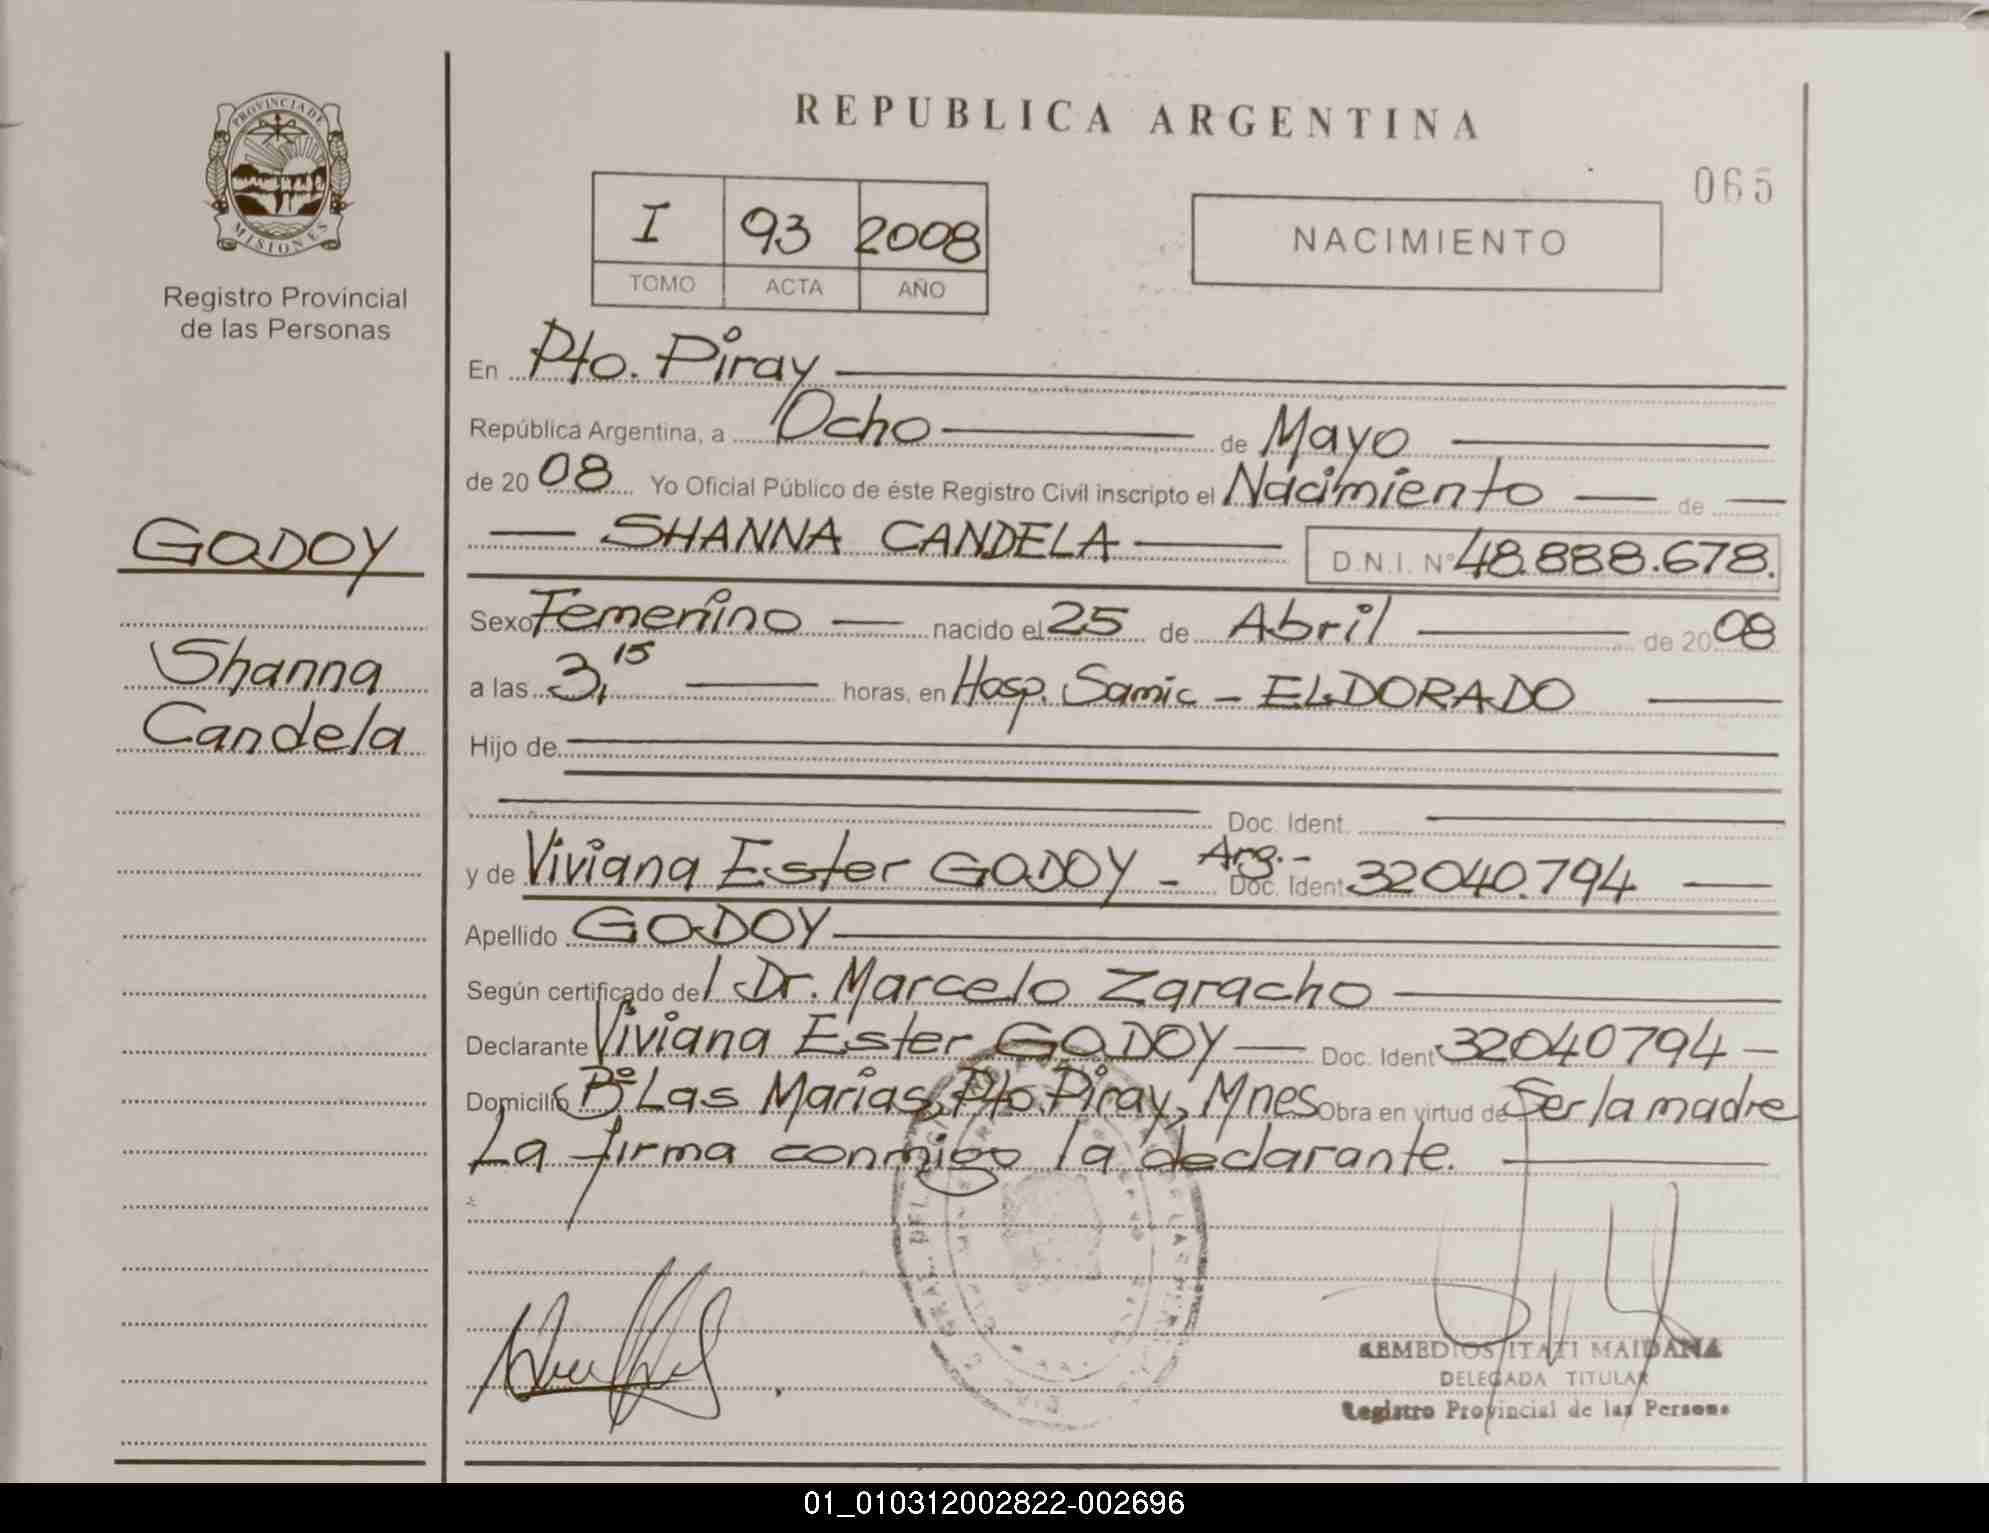 REPUBLICA ARGENTINA
065
PROVINCIA DE
MISIONES
Registro Provincial
de las Personas
I 93 2008
TOMO ACTA AÑO
NACIMIENTO
GODOY
Shanna
Candela
En Pto. Piray
República Argentina, a Ocho de Mayo
de 20 08 Yo Oficial Público de éste Registro Civil inscripto el Nacimiento de
SHANNA CANDELA D.N.I. Nº 48.888.678.
Sexo Femenino nacido el 25 de Abril de 20 08
a las 3,15 horas, en Hosp. Samic - ELDORADO
Hijo de
Doc. Ident.
y de Viviana Ester GODOY - Arg.- Doc. Ident 32040.794
Apellido GODOY
Según certificado del Dr. Marcelo Zaracho
Declarante Viviana Ester GODOY Doc. Ident 32040794
Domicilio Bº Las Marias, Pto. Piray, Mnes Obra en virtud de Ser la madre
La firma conmigo la declarante.
REMEDIOS ITATI MAIDANA
DELEGADA TITULAR
Registro Provincial de las Persons
01_010312002822-002696